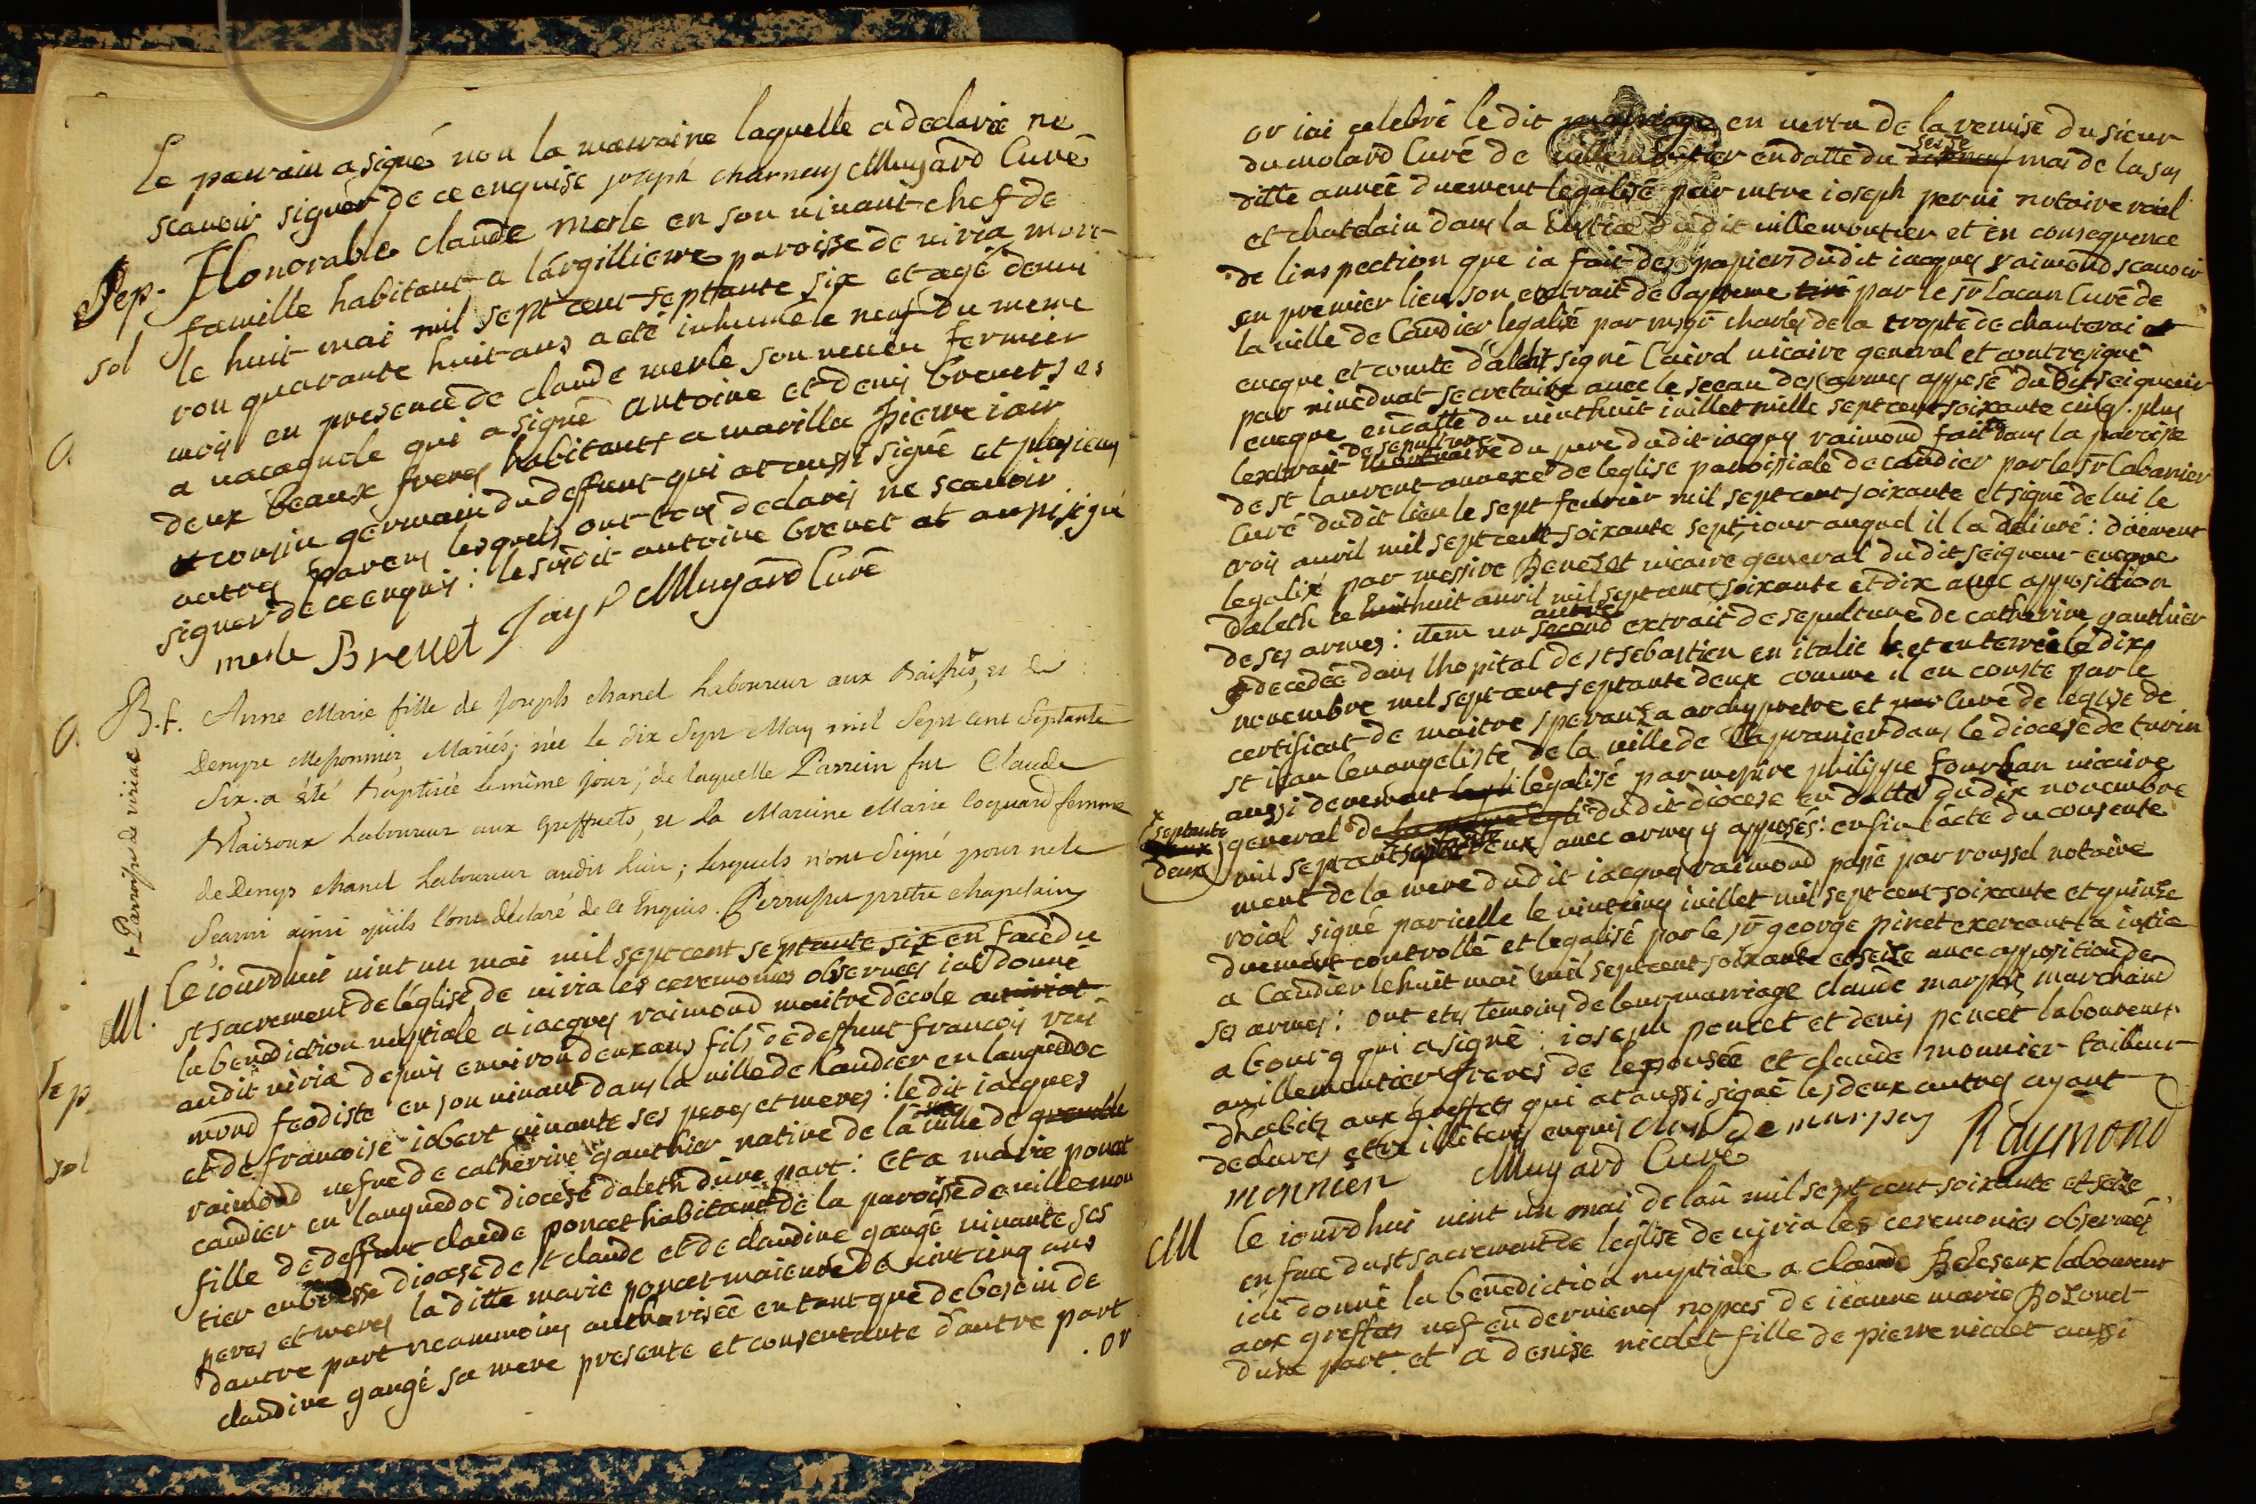 Le parrain a signé non la marraine laquelle a declaré ne
scavoir signer de ce enquise joseph charnay Mugard Curé
Sep. Honorable claude merle en son vivant chef de
famille habitant a largilliere paroisse de viria mort
sol le huit mai mil sept cent septante six et agé denvi
ron quarante huit ans a eté inhumé le neuf du meme
mois en presence de claude merle son neveu fermier
a vacagnole qui a signé antoine et denis brevet ses
deux beaux freres habitants a marillia pierre
et cousin germain du deffunt qui at aussi signé et plusieurs
autres parens lesquels ont tous declarés ne scavoir
signer de ce enquis : le susdit antoine brevet at aussi signé
merle Brevet Mugard Curé
B.f. Anne Marie fille de Joseph chanel Laboureur aux et de
Denyse Mariés; née le dix Sept May mil Sept Cent Septante
Six. a été baptisée le même jour; de laquelle Parrein fut Claude
Laboureur aux greffets, et la Mareine Marie Coquard femme
de Denys chanel Laboureur audit Lieu; lesquels n'ont Signé pour ne le
Scavoir ainsi qu'ils l'ont déclaré de ce Enquis. prêtre chapelain
+ Parroisse de viriat
M. Ce iourdhui vint un mai mil sept cent septante six en face du
st sacrement de léglise de viria les ceremonies observées iai donné
la benediction nuptiale a iacques raimond maitre décole a viriat
audit viria depuis environ deux ans fils de deffunt francois rai
mond feodiste en son vivant dans la ville de Caudier en languedoc
et de francoise iobert vivante ses peres et meres : le dit iacques
raimond vefve de catherine gauthier native de la ville de grenoble
caudier en languedoc diocese daleth dune part : et a marie poncet
fille de deffunt claude poncet habitant de la paroisse de villemou
tier en bresse diocese de st claude et de claudine gangé vivante ses
peres et meres la ditte marie poncet maieure de vint cinq ans
dautre part neanmoins authorisée en tant que de besoin de
claudine gangé sa mere presente et consentante dautre part
. or
or iai celebré le dit mariage en vertu de la remise du sieur
dumolard Curé de villemoutier en datte du seise mai de la sus
ditte année duement legalisé par mtre ioseph perni notaire roial
et chatelain dans la iustice dudit villemoutier et en consequence
de linspection que ia fait des papiers dudit iacques raimond scavoir
en premier lieu son extrait de bapteme tiré par le sr Lacan Curé de
la ville de Caudier legalisé par msgr charles de la cropte de chanterai
eveque et comte d'aleth signé Cairol vicaire general et contresigné
par secretaire avec le sceau des armes apposé du dit seigneur
eveque en datte du vint huit iuillet mille sept cent soixante cinq. plus
lextrait de sepulture mortuaire du pere dudit iacques raimond fait dans la paroisse
de st laurent annexe de leglise paroissiale de caudier par le sr Cabanier
Curé dudit lieu le sept fevrier mil sept cent soixante et signé de lui le
trois avril mil sept cent soixante sept, iour auquel il la delivré : duement
legalisé par messire Benezet vicaire general dudit seigneur eveque
daleth le huit avril mil sept cent soixante et dix avec apposition
de ses armes : item un autre second extrait de sepulture de catherine gauthier
decedée dans lhopital de st sebastien en italie et enterrée le dix
novembre mil sept cent septante deux comme il en conste par le
certificat de maitre speranza archypretre et Curé de leglise de
st iean levangeliste de la ville de dans le diocese de turin
aussi devement legalisé par messire philippe vicaire
general de dudit diocese en datte du dix novembre
x septante deux
mil sept cent septante deux avec armes y apposés : enfin lácte du consente
ment de la mere dudit iacques raimond passé par roussel notaire
roial signé par icelle le vint cinq iuillet mil sept cent soixante et quinze
duement controllé et legalisé par le sr george pinet exercant la iustice
a Caudier le huit mai mil sept cent soixante et seize avec apposition de
ses armes : ont etés temoins de leur marriage claude marpey marchand
a bourg qui a signé : ioseph poncet et denis poncet laboureurs
a villemoutier freres de lepousée et claude monnier tailleur
dhabits aux greffets qui at aussi signé les deux autres ayant
declares etre illéterés enquis de marpey Raymond
monnien Mugard Curé
M Ce iourdhui vint un mai de lan mil sept cent soixante et seise
en face du st sacrement de léglise de viria les ceremonies observées
iai donné la benediction nuptiale a claude laboureur
aux greffets vef en dernieres nopces de ieanne marie Bozonet
dune part. et a denise nicolet fille de pierre nicolet aussi